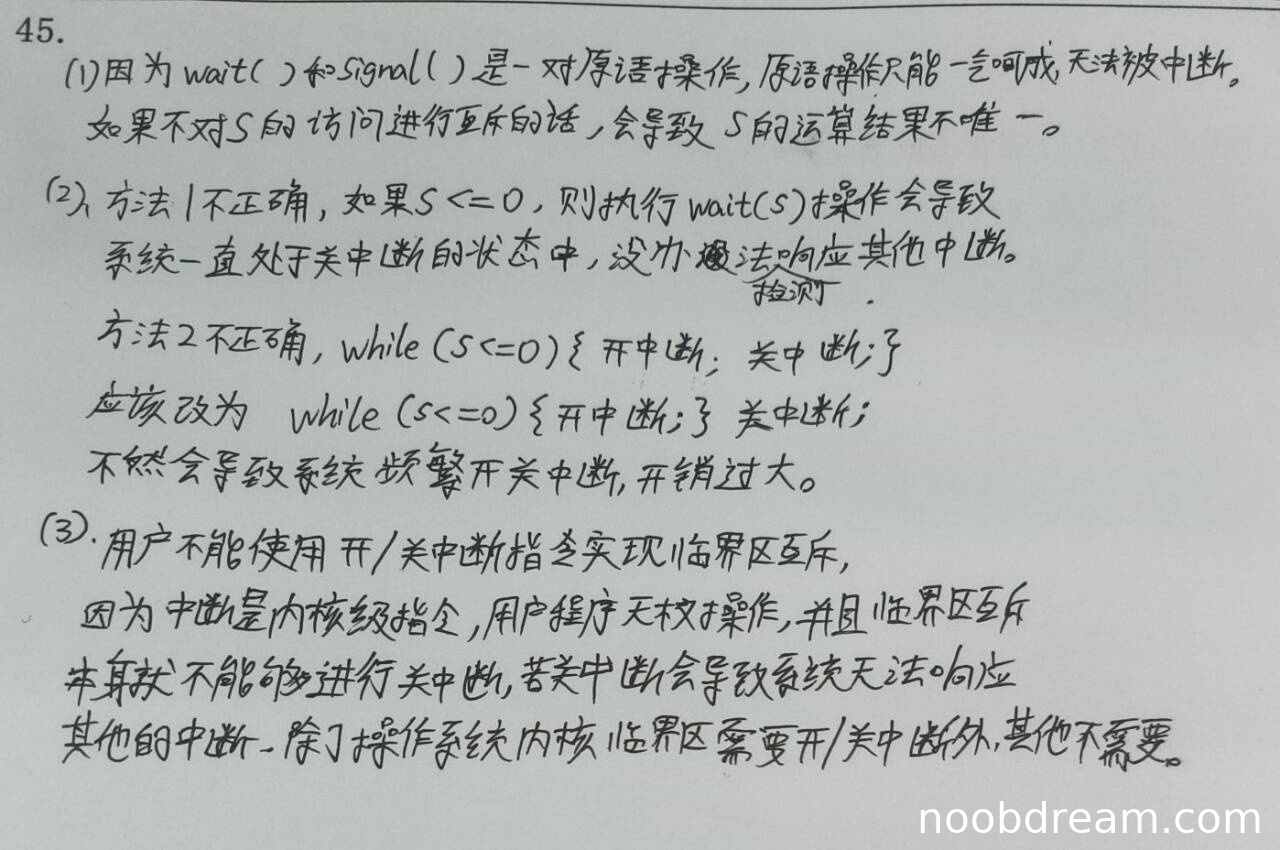 45.
(1)因为wait()和signal()是一对原语操作,原语操作只能一气呵成,无法被中断。
如果不对S的访问进行互斥的话,会导致S的运算结果不唯一。
(2)、方法1不正确,如果S<=0,则执行wait(S)操作会导致
系统一直处于关中断的状态中,没办法响应其他中断。
检测
方法2不正确,while(S<=0){开中断;关中断;}
应该改为 while(S<=0){开中断;}关中断;
不然会导致系统频繁开关中断,开销过大。
(3).用户不能使用开/关中断指令实现临界区互斥,
因为中断是内核级指令,用户程序无权操作,并且临界区互斥
本身就不能够进行关中断,若关中断会导致系统无法响应
其他的中断、除了操作系统内核临界区需要开/关中断外,其他不需要。
noobdream.com